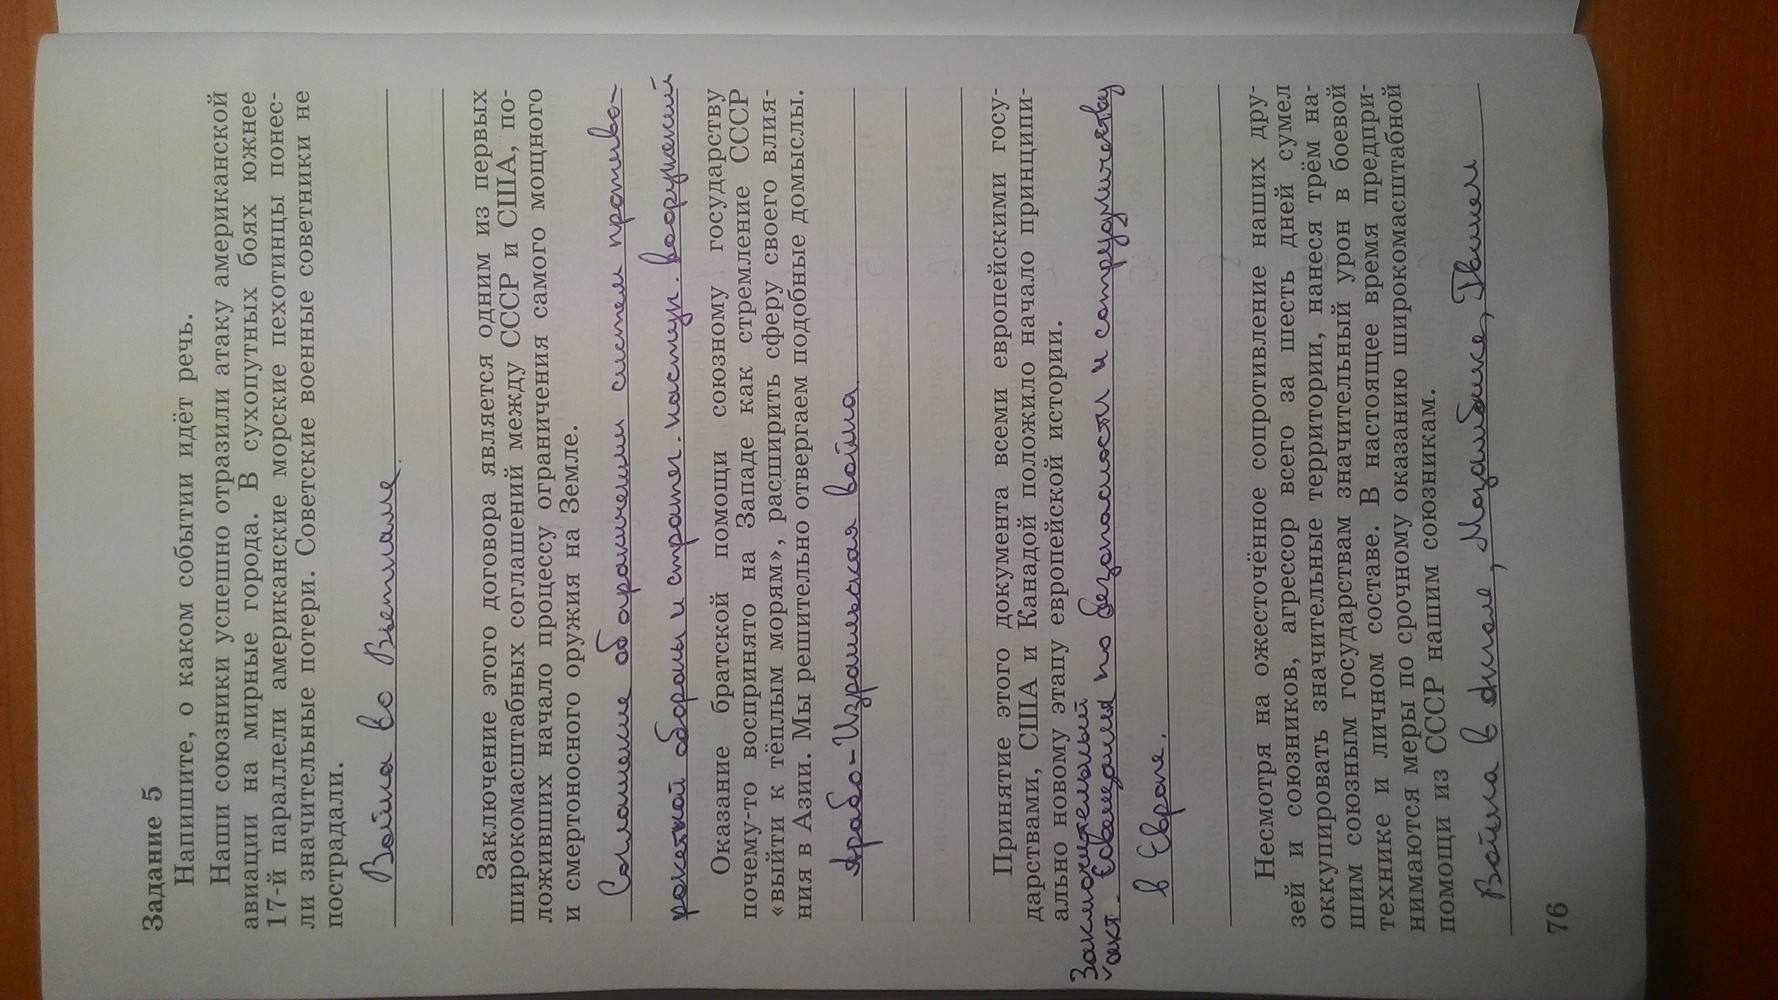 Задание 5
Напишите, о каком событии идёт речь.
Наши союзники успешно отразили атаку американской
авиации на мирные города. В сухопутных боях южнее
17-й параллели американские морские пехотинцы понес-
ли значительные потери. Советские военные советники не
пострадали.
Война во Вьетнаме.
Заключение этого договора является одним из первых
широкомасштабных соглашений между СССР и США, по-
ложивших начало процессу ограничения самого мощного
и смертоносного оружия на Земле.
Соглашение об ограничении систем противо-
ракетной обороны и стратег. наступ. вооружений
Оказание братской помощи союзному государству
почему-то воспринято на Западе как стремление СССР
«выйти к тёплым морям», расширить сферу своего влия-
ния в Азии. Мы решительно отвергаем подобные домыслы.
Арабо-Израильская война
Принятие этого документа всеми европейскими госу-
дарствами, США и Канадой положило начало принципи-
ально новому этапу европейской истории.
Заключительный
акт. Совещания по безопасности и сотрудничеству
в Европе.
Несмотря на ожесточённое сопротивление наших дру-
зей и союзников, агрессор всего за шесть дней сумел
оккупировать значительные территории, нанеся трём на-
шим союзным государствам значительный урон в боевой
технике и личном составе. В настоящее время предпри-
нимаются меры по срочному оказанию широкомасштабной
помощи из СССР нашим союзникам.
Война в Анголе, Мозамбике,
76